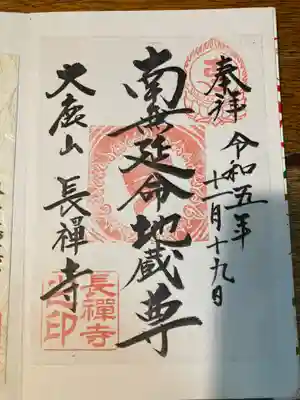 奉拝
令和五年
十一月十九日
南無延命地蔵尊
大鹿山
長禅寺
長禪寺
印